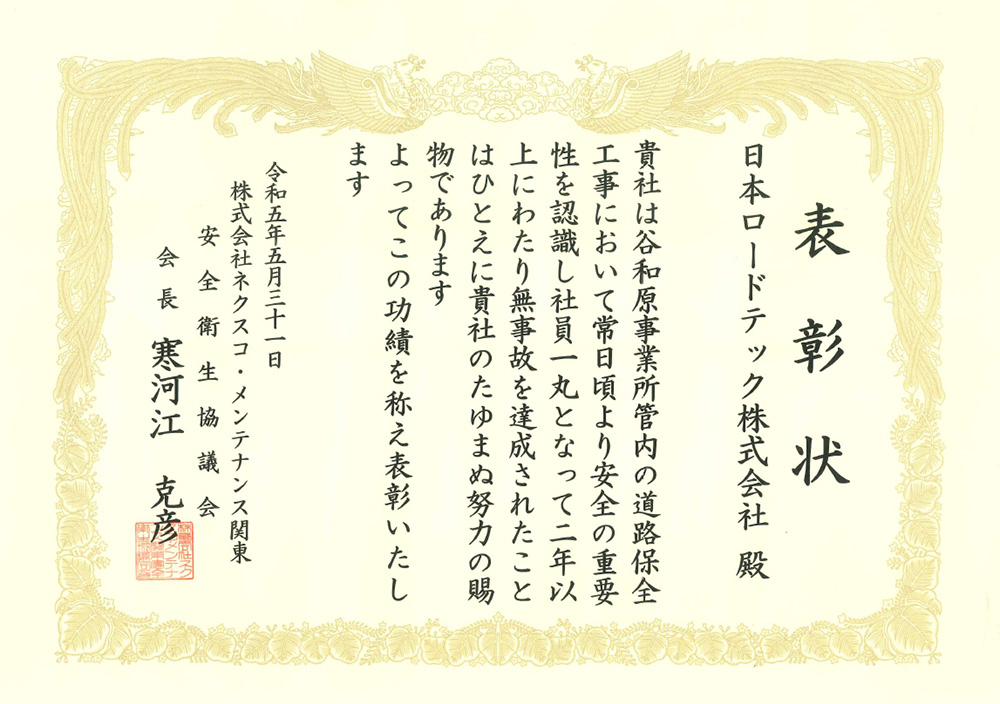 表彰状
日本ロードテック株式会社 殿
貴社は谷和原事業所管内の道路保全
工事において常日頃より安全の重要
性を認識し社員一丸となって二年以
上にわたり無事故を達成されたこと
はひとえに貴社のたゆまぬ努力の賜
物であります
よってこの功績を称え表彰いたし
ます
令和五年五月三十一日
株式会社ネクスコ・メンテナンス関東
安全衛生協議会
会長 寒河江 克彦